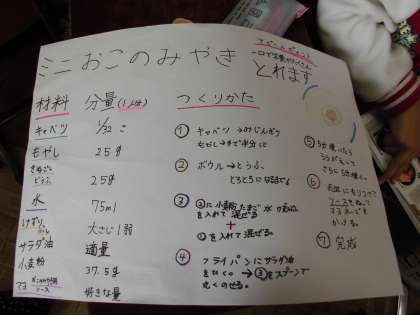 ミニおこのみやき
アピールポイント
一口で栄養がたくさん
とれます
材料 分量(1人分) つくりかた
キャベツ 1/32こ
もやし 25g
きぬごし
どうふ 25g
水 75ml
けずりぶし 大さじ1弱
サラダ油 適量
小麦粉 37.5g
マヨ おこのみやき
ソース 好きな量
① キャベツ→みじんぎり
もやし→
② ボウル→とうふ、
とろとろになるまで
③ ②に小麦粉 たまご 水
を入れて混ぜる
+
①を入れて混ぜる。
④ フライパンにサラダ油
をひく。→③をスプーンで
⑤ 5分
さらに5分焼く。
⑥ お皿にもりつけて
ソースをぬって
マヨネーズを
かける。
⑦ 完成